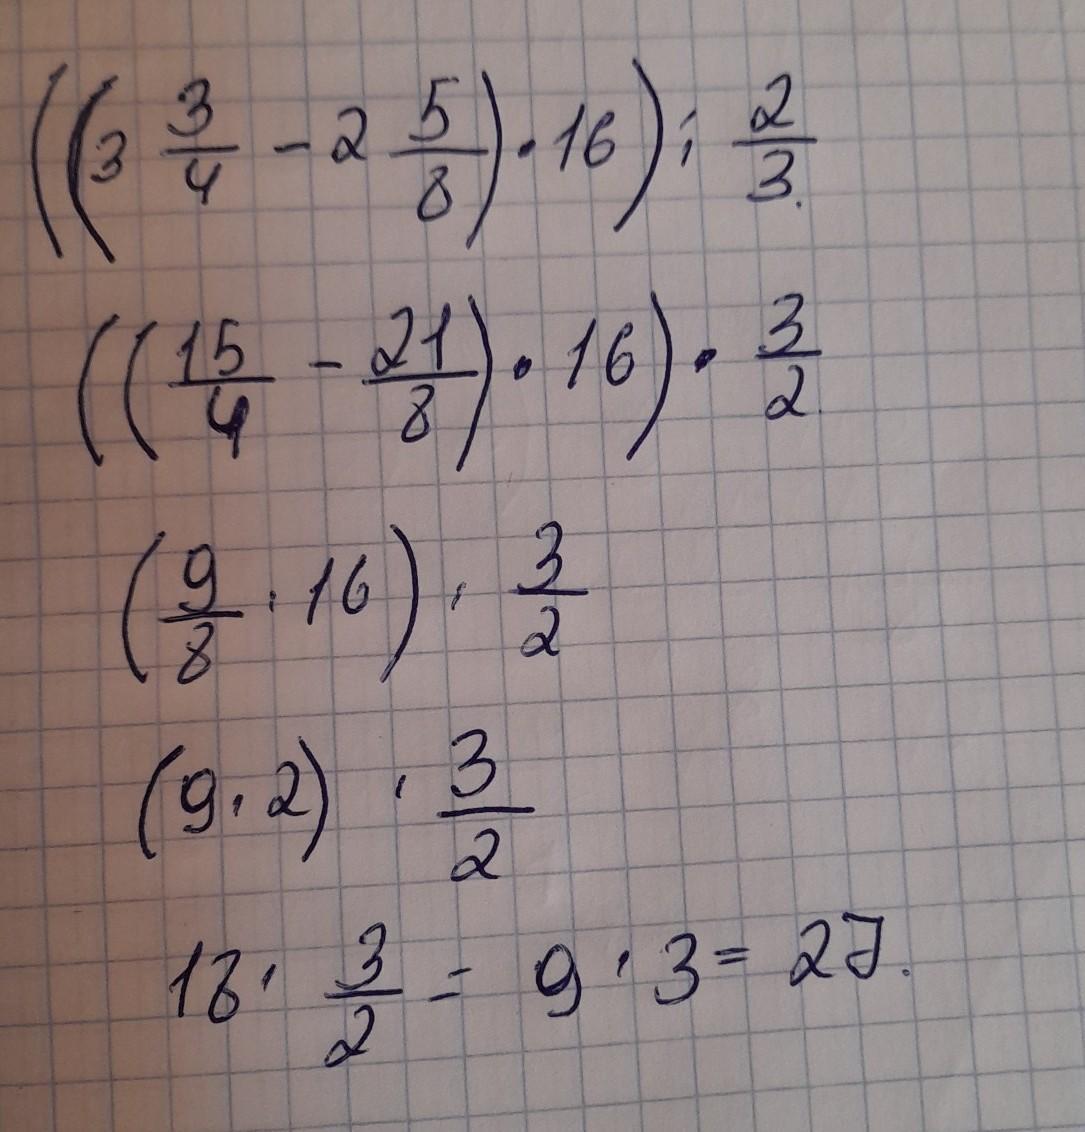 ((3 3/4 - 2 5/8) · 16) : 2/3
((15/4 - 21/8) · 16) · 3/2
(9/8 · 16) · 3/2
(9 · 2) · 3/2
18 · 3/2 = 9 · 3 = 27.